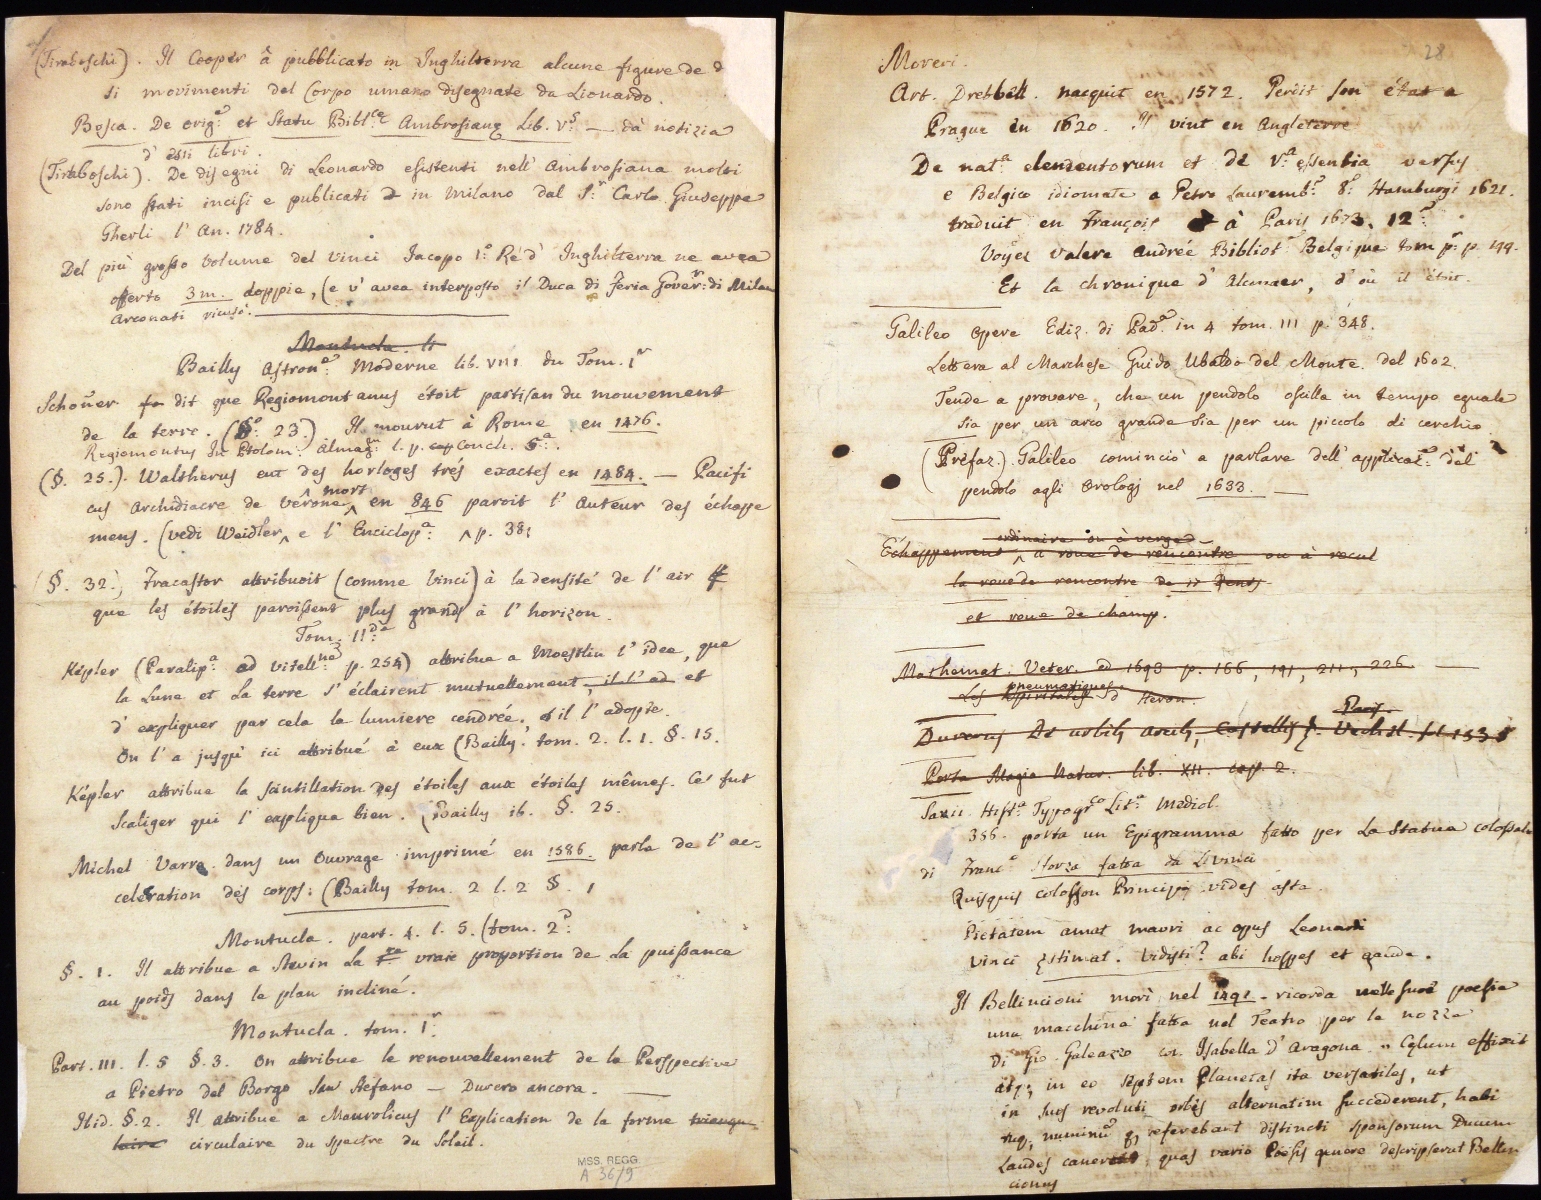 (Tiraboschi). Il Cooper â pubblicato in Inghilterra alcune figure de
li movimenti del Corpo umano disegnate da Lionardo.
Bosca. De orig.e et Statu Bibl.cæ Ambrosianę Lib. V.s — dà notizia
d' essi libri.
(Tiraboschi). De disegni di Leonardo esistenti nell' Ambrosiana molti
sono stati incisi e publicati in Milano dal S.r Carlo Giuseppe
Gherli l' An. 1784.
Del più grosso Volume del Vinci Jacopo 1.o Re d' Inghilterra ne avea
offerto 3 m. doppie, (e v' avea interposto il Duca di Feria Gover.r: di Milan
Arconati ricusò.
Montucla. li
Bailly Astron.e Moderne lib. VIII du Tom. I.r
Schoner dit que Regiomontanus étoit partisan du mouvement
de la terre. (§.o 23.) Il mourut à Rome en 1476.
Regiomontus In Ptolom. Almag.m l. p. Conch. 5.a
(§. 25.). Waltherus eut des horloges trés exactes en 1484. — Pacifi
cus Archidiacre de Vérone mort en 846 paroit l' Auteur des échappe
mens. (vedi Weidler e l' Enciclop.a p. 38;
(§. 32.) Fracastor attribuoit (comme Vinci) à la densité de l' air
que les étoiles paroissent plus grands à l' horizon.
Tom. II.do
Képler (Paralip.a ad vitell.ne p. 254) attribue a Moestlin l' idee, que
la Lune et La terre s' éclairent mutuellement, il l' ad et
d' expliquer par cela la lumiere cendrée. il l' adopte.
On l' a jusqu' ici attribué à eux (Bailly. tom. 2. l. 1. §. 15.
Képler attribue la scintillation des étoiles aux étoiles mêmes. Ce fut
Scaliger qui l' explique bien. (Bailly ib. §. 25.
Michel Varre dans un Ouvrage imprimé en 1586. parla de l' ac-
celeration des corps: (Bailly tom. 2 l. 2 §. 1
Montucla. part. 4. l. 5. (tom. 2.o
§. 1. Il attribue a Stevin La vraie proportion de La puissance
au poids dans le plan incliné.
Montucla. tom. I.r
Part. III. l. 5 §. 3. On attribue le renouvellement de la Perspective
a Pietro del Borgo San Stefano — Durero ancora. —
Ibid. §. 2. Il attribue a Maurolicus l' Explication de la forme triangu
laire circulaire du spectre du Soleil.
MSS. REGG.
A 36/9
28
Moreri.
Art. Drebbell. nacquit en 1572. Perdit son état a
Prague en 1620. Il vint en Angleterre
De nat.a elementorum et de V.a essentia versus
e Belgico idiomate a Petro Lauremb.o 8.o Hamburgi 1621.
traduit en François à Paris 1673. 12.o
Voyez Valere Andrée Bibliot Belgique tom p.r p. 149.
Et la chronique d' Alcmaer, d' où il étoit.
Galileo Opere Ediz. di Pad.a in 4 tom. III p. 348.
Lettera al Marchese Guido Ubaldo del Monte del 1602.
Tende a provare, che un pendolo oscilla in tempo eguale
sia per un arco grande sia per un piccolo di cerchio
(Préfaz.) Galileo cominciò a parlare dell' applicaz.e del
pendolo agli Orologj nel 1633. —
ordinaire ou à verge
Échappement à roue de rencontre ou à recul
la roue de rencontre de 17 dents
et roue de champ.
Mathemat. Veter. ed 1693 p. 166, 191, 211, 226
pneumatiques
Les Spiritales d Heron.
Paris.
Durerus De urbib, arcib, Castellis Wechel. 1535
Porta Magia Natur. lib. XII. cap. 2.
Saxii Hist.a Typogr.co Lit.a Mediol.
356. porta un Epigramma fatto per La Statua colossale
di Franc.o Sforza fatta da L. Vinci
Quisquis colosson Principis vides asta.
Pictatem amat mauri ac opus Leonardi
Vinci ęstimat. Vidisti? abi hospes et gaude.
Il Bellincioni morì nel 1491. ricorda nelle sue poesie
una macchina fatta nel Teatro per le nozze
Di Gio. Galeazzo con Isabella d' Aragona „ Cęlum effixit
atq; in eo septem Planetas ita versatiles, ut
in suos revoluti orbis alternatim succederent, habi
tuq; numinū q; referebant distincti sponsorum Ducum
Laudes canerent quas vario Poësis genere descripserat Bellin
cionus